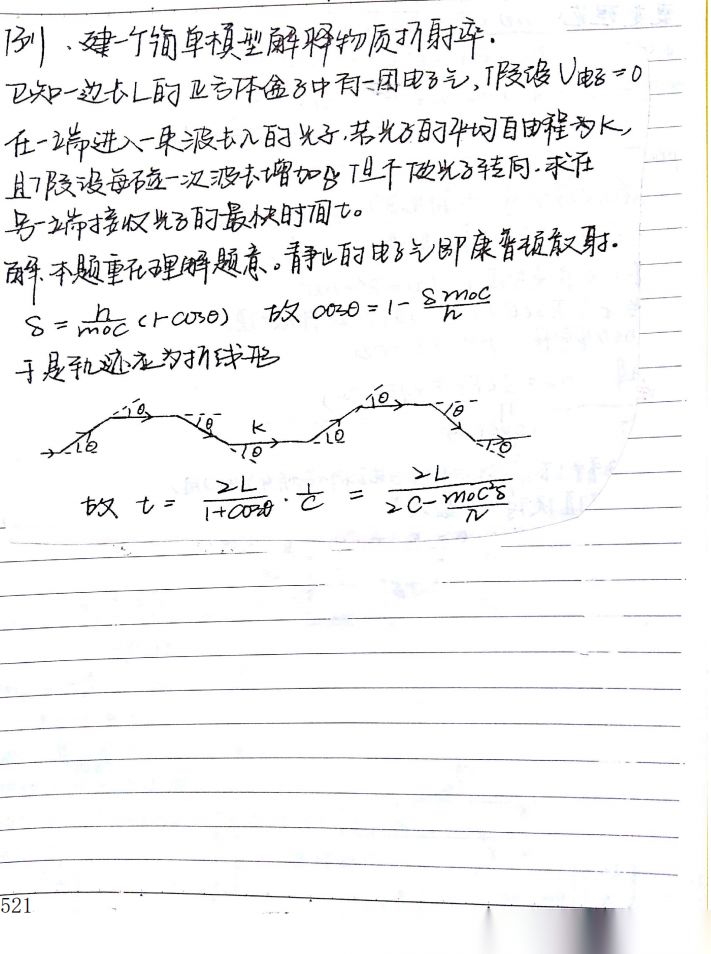 例、建一个简单模型解释物质折射率.
已知一边长L的正方体盒子中有一团电子气,假设V电子=0
在一端进入一束波长λ的光子.若光子的平均自由程为K,
且假设每碰一次波长增加δ 且不使光子转向.求在
另一端接收光子的最快时间t。
解.本题重在理解题意。静止的电子气即康普顿散射.
δ = h/m₀c (1-cosθ) 故 cosθ = 1 - δm₀c/h
于是轨迹应为折线形
θ θ θ K θ θ θ θ θ
故 t = 2L/(1+cosθ) · 1/c = 2L/(2c - m₀c²δ/h)
521